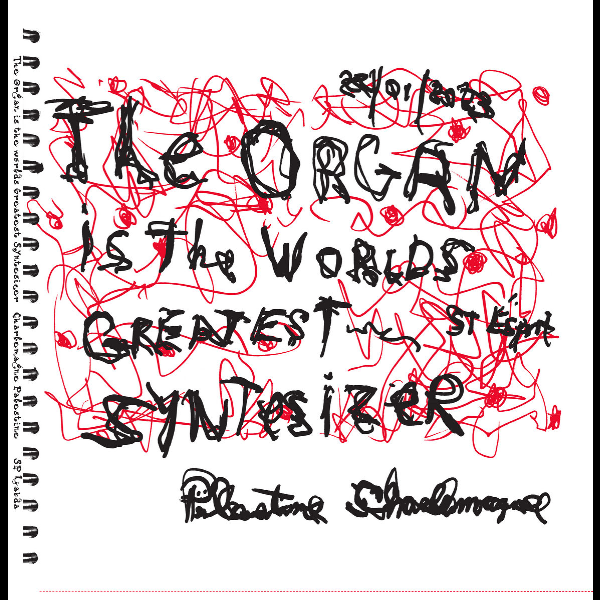 22/01/2023
The ORGAN
Is The WORLDS
GREATEST St Esprit
SYNTESIZER
Palestine Charlemagne
The Organ is the worlds Greatest Syntesizer Charlemagne Palestine